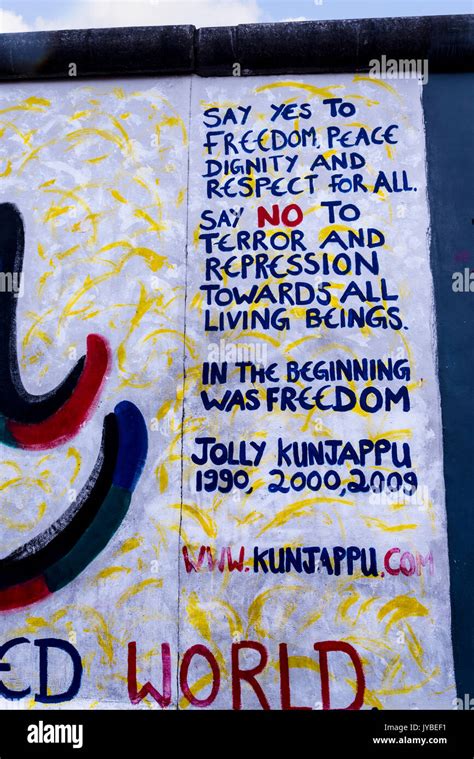 SAY YES TO
FREEDOM, PEACE
DIGNITY AND
RESPECT FOR ALL.
SAY NO TO
TERROR AND
REPRESSION
TOWARDS ALL
LIVING BEINGS.
IN THE BEGINNING
WAS FREEDOM
JOLLY KUNJAPPU
1990, 2000, 2009
WWW.KUNJAPPU.COM
ED WORLD
alamy
Image ID: JYBEF1
www.alamy.com